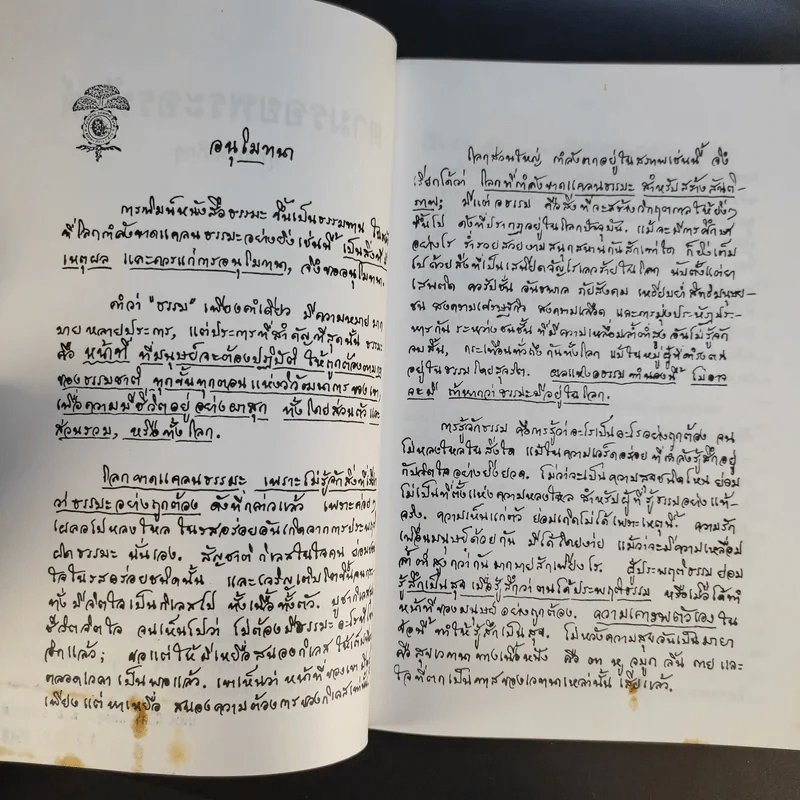 อนุโมทนา
การพิมพ์หนังสือธรรมะ ขึ้นเป็นธรรมทาน
ที่โลกกำลังขาดแคลนธรรมะอย่างยิ่งเช่นนี้ เป็นสิ่งที่มี
เหตุผล และควรแก่การอนุโมทนา, จึงขออนุโมทนา.
คำว่า "ธรรม" เพียงคำเดียว มีความหมายมาก
มายหลายประการ, แต่ประการที่สำคัญที่สุดนั้น ธรรมะ
คือ หน้าที่ ที่มนุษย์จะต้องปฏิบัติ ให้ถูกต้องตามกฎ
ของธรรมชาติ ทุกขั้นทุกตอนแห่งวิวัฒนาการของเขา,
เพื่อความมีชีวิตอยู่ อย่างผาสุก ทั้งโดยส่วนตัวและ
ส่วนรวม, หรือทั้งโลก.
โลกขาดแคลนธรรมะ เพราะไม่รู้จักสิ่งที่เรียก
ว่าธรรมะอย่างถูกต้อง ดังที่กล่าวแล้ว เพราะค่อยๆ
เผลอไปหลงใหล ในรสอร่อยอันเกิดจากการประพฤติ
ผิดธรรมะ นั่นเอง. สัญชาติกิเลสในใจคน ย่อม
ใจในรสอร่อยชนิดนั้น และเจริญเติบโตขึ้นจนกระ
ทั่ง มีจิตใจเป็นกิเลสไป ทั้งเนื้อทั้งตัว. บูชากิเลส
ชีวิตจิตใจ จนเห็นไปว่า ไม่ต้องมีธรรมะอะไรที่ไหน
อีกแล้ว; ขอแต่ให้มีเหยื่อสนองกิเลส ให้เต็มที่
ตลอดเวลา เป็นพอแล้ว. เขาเห็นว่า หน้าที่ของเขา
เพียงแต่หาเหยื่อ สนองความต้องการของกิเลสเท่านั้น
โลกส่วนใหญ่ กำลังตกอยู่ในสภาพเช่นนี้ จึง
เรียกได้ว่า โลกที่กำลังขาดแคลนธรรมะ สำหรับสร้างสันติ-
ภาพ; มีแต่อธรรม คือสิ่งที่จะสร้างวิกฤตกาลให้ยิ่งๆ
ขึ้นไป ดังที่ปรากฏอยู่ในโลกปัจจุบัน. แม้จะมีการศึกษา
อย่างไร ร่ำรวยสวยงามสนุกสนานกันสักเท่าใด ก็ยิ่งเต็ม
ไปด้วยสิ่งที่เป็นเสนียดจัญไรเลวร้ายในโลก นับตั้งแต่ยา
เสพติด คอรัปชั่น อันธพาล ภัยสังคม เหยียบย่ำสิทธิมนุษย-
ชน สงครามเศรษฐกิจ สงครามเลือด และการมุ่งประหัตประ-
หารกัน ระหว่างชนชั้น ที่มีความเหลื่อมล้ำต่ำสูงอันไม่รู้จัก
จบสิ้น, กระเทือนทั่วถึงกันทั้งโลก แม้ในหมู่ผู้ที่ดำรงตน
อยู่ในธรรมโดยสุจริต. ผลแห่งอธรรมทำนองนี้ ไม่อาจ
จะมี ถ้าหากว่าธรรมะมีอยู่ในโลก.
การรู้จักธรรม คือการรู้ว่าอะไรเป็นอะไรอย่างถูกต้อง จน
ไม่หลงใหลในสิ่งใด แม้ในความเอร็ดอร่อย ที่กำลังรู้สึกอยู่
กับจิตใจอย่างยิ่งยวด. ไม่ว่าจะเป็นความสุขชนิดไหน ย่อม
ไม่เป็นที่ตั้งแห่งความหลงใหล สำหรับผู้ที่รู้ธรรมอย่างแท้
จริง. ความเห็นแก่ตัว ย่อมเกิดไม่ได้เพราะเหตุนี้. ความรัก
เพื่อนมนุษย์ด้วยกัน มีได้โดยง่าย แม้ว่าจะมีความเหลื่อม
ล้ำต่ำสูงกว่ากันมากมายสักเพียงไร. ผู้ประพฤติธรรม ย่อม
รู้สึกเป็นสุข เมื่อรู้สึกว่าตนได้ประพฤติธรรม หรือเมื่อได้ทำ
หน้าที่ของมนุษย์อย่างถูกต้อง. ความเคารพตัวเองใน
ข้อนี้ ทำให้รู้สึกเป็นสุข. ไม่หวังความสุขอันเป็นมายา
คือสุขเวทนาทางเนื้อหนัง คือ ตา หู จมูก ลิ้น กาย และ
ใจที่ตกเป็นทาสของเวทนาเหล่านั้น เสียแล้ว.